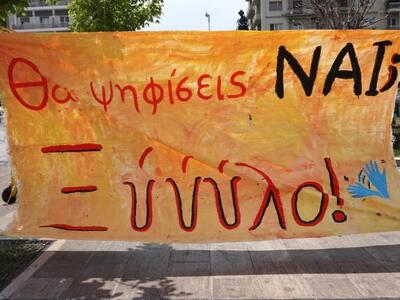 Θα ψηφίσεις ΝΑΙ;
Ξύύύλο!